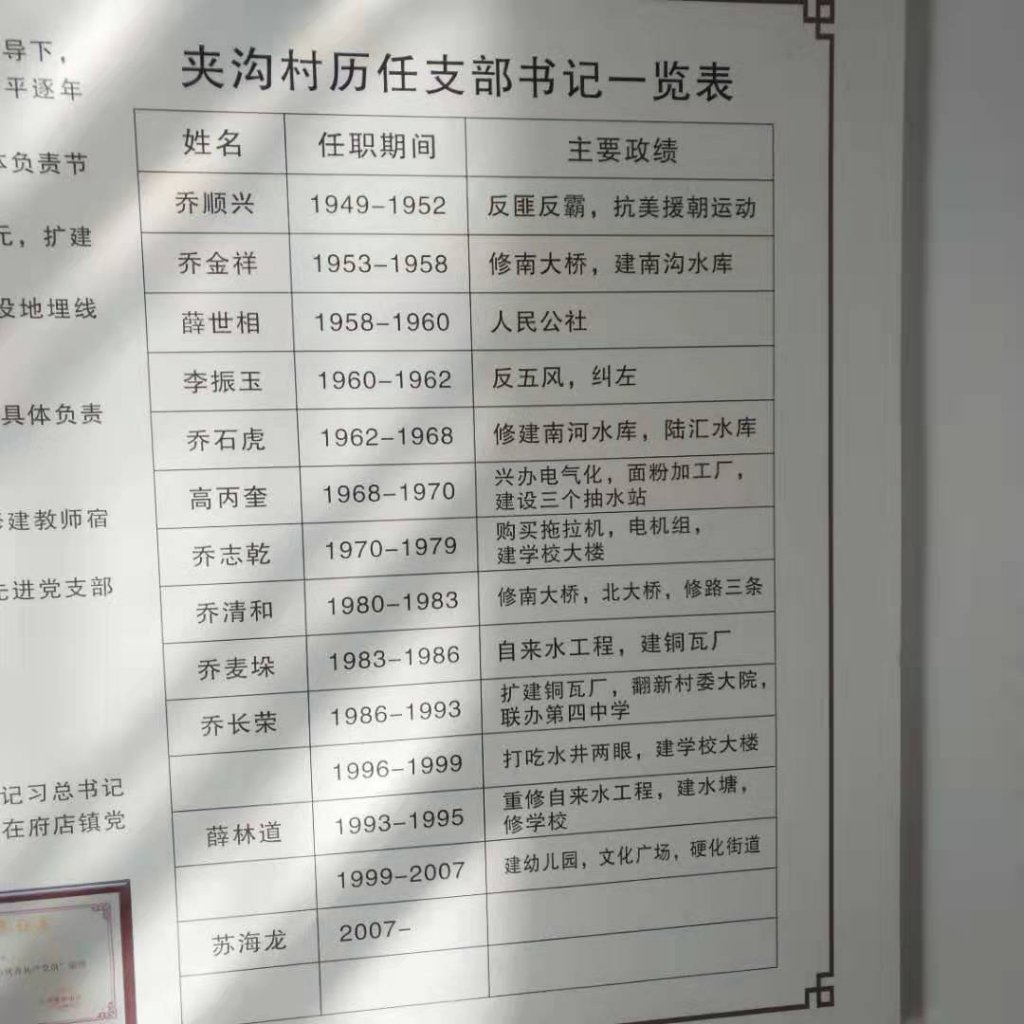 导下，
平逐年
体负责节
元，扩建
设地埋线
具体负责
建教师宿
先进党支部
记习总书记
在府店镇党
夹沟村历任支部书记一览表
姓名 任职期间 主要政绩
乔顺兴 1949-1952 反匪反霸，抗美援朝运动
乔金祥 1953-1958 修南大桥，建南沟水库
薛世相 1958-1960 人民公社
李振玉 1960-1962 反五风，纠左
乔石虎 1962-1968 修建南河水库，陆汇水库
高丙奎 1968-1970 兴办电气化，面粉加工厂，
建设三个抽水站
乔志乾 1970-1979 购买拖拉机，电机组，
建学校大楼
乔清和 1980-1983 修南大桥，北大桥，修路三条
乔麦垛 1983-1986 自来水工程，建铜瓦厂
乔长荣 1986-1993 扩建铜瓦厂，翻新村委大院，
联办第四中学
1996-1999 打吃水井两眼，建学校大楼
薛林道 1993-1995 重修自来水工程，建水塘，
修学校
1999-2007 建幼儿园，文化广场，硬化街道
苏海龙 2007-